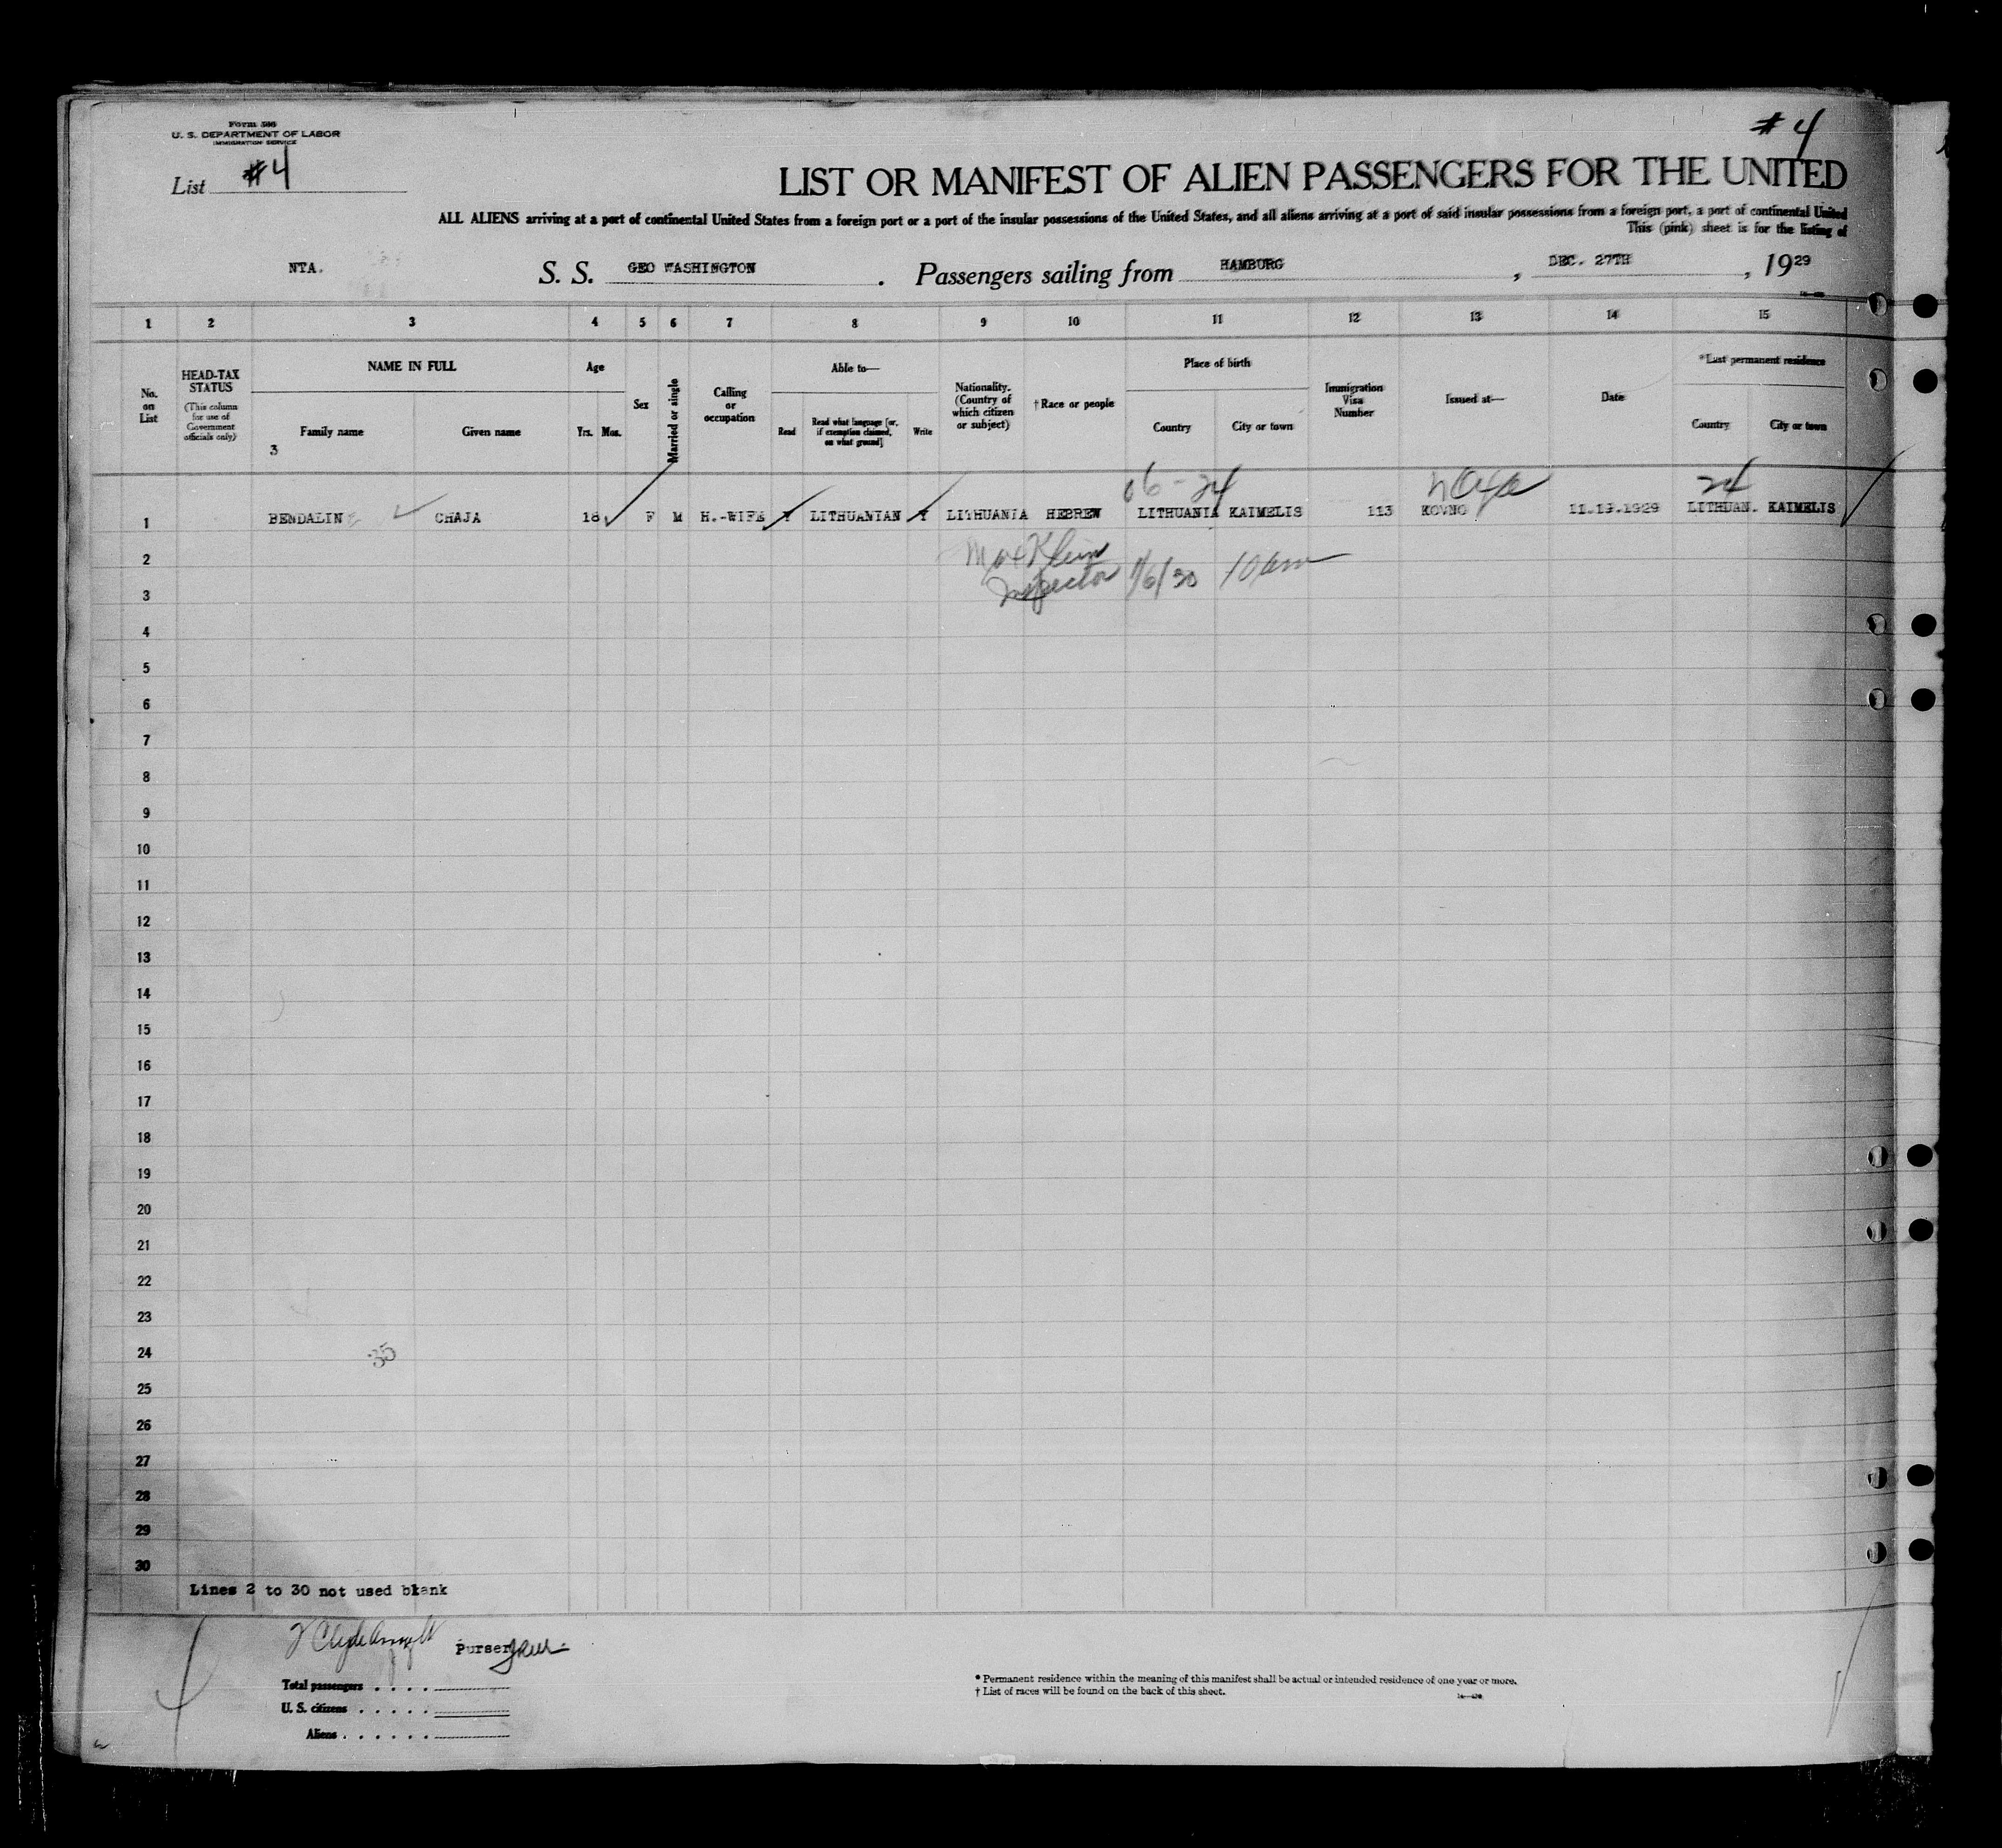 Form 500
U. S. DEPARTMENT OF LABOR
IMMIGRATION SERVICE
List #4
#4
LIST OR MANIFEST OF ALIEN PASSENGERS FOR THE UNITED
ALL ALIENS arriving at a port of continental United States from a foreign port or a port of the insular possessions of the United States, and all aliens arriving at a port of said insular possessions from a foreign port, a port of continental United
This (pink) sheet is for the listing of
NTA. S. S. GEO WASHINGTON . Passengers sailing from HAMBURG , DEC. 27TH , 1929
1 2 3 4 5 6 7 8 9 10 11 12 13 14 15
No. on List
HEAD-TAX STATUS
(This column for use of Government officials only)
NAME IN FULL
Family name Given name
3
Age
Yrs. Mos.
Sex
Married or single
Calling or occupation
Able to—
Read
Read what language [or, if exemption claimed, on what ground]
Write
Nationality. (Country of which citizen or subject)
†Race or people
Place of birth
Country City or town
Immigration Visa Number
Issued at—
Date
*Last permanent residence
Country City or town
06-24 24
1 BENDALIN CHAJA 18 F M H.-WIFE Y LITHUANIAN Y LITHUANIA HEBREW LITHUANIA KAIMELIS 113 KOVNO 11.13.1929 LITHUAN. KAIMELIS
2 Max Klein
3 Inspector 1/6/30 10 am
4
5
6
7
8
9
10
11
12
13
14
15
16
17
18
19
20
21
22
23
24 35
25
26
27
28
29
30
Lines 2 to 30 not used blank
Purser
Total passengers . . . .
U. S. citizens . . . . .
Aliens . . . . . .
* Permanent residence within the meaning of this manifest shall be actual or intended residence of one year or more.
† List of races will be found on the back of this sheet.